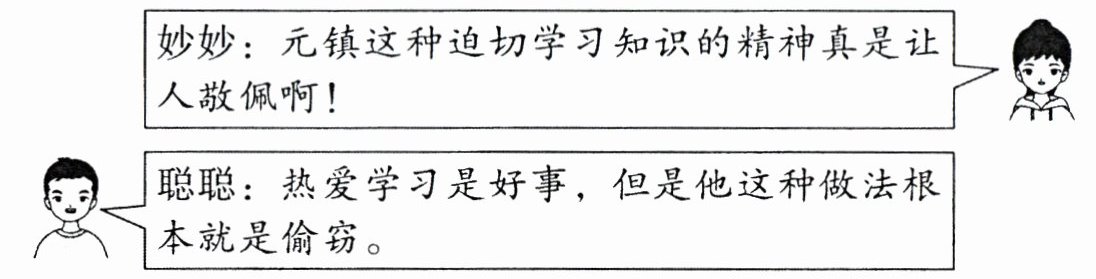 妙妙：元镇这种迫切学习知识的精神真是让
人敬佩啊！
聪聪：热爱学习是好事，但是他这种做法根
本就是偷窃。